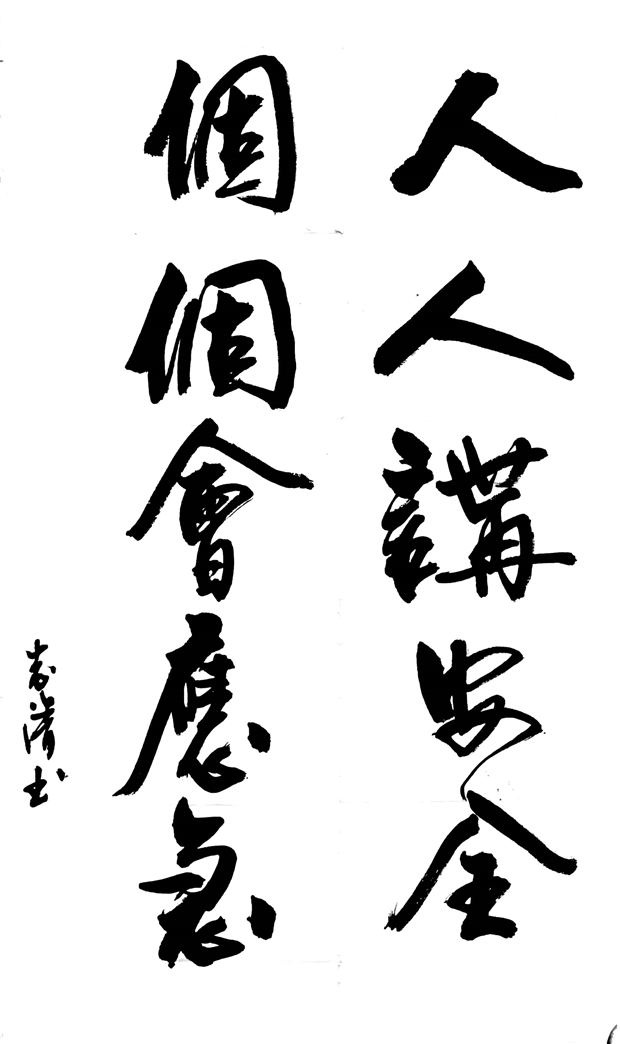 人人講安全
個個會應急